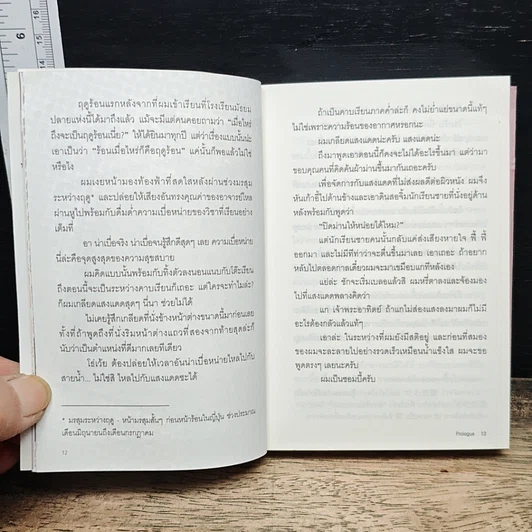 6
15
16
ฤดูร้อนแรกหลังจากที่ผมเข้าเรียนที่โรงเรียนมัธยม
ปลายแห่งนี้ได้มาถึงแล้ว แม้จะมีแต่คนคอยถามว่า “เมื่อไหร่
ถึงจะเป็นฤดูร้อนเนี่ย?” ให้ได้ยินมาทุกปี แต่ว่าเรื่องแบบนั้นน่ะ
เอาเป็นว่า “ร้อนเมื่อไหร่ก็คือฤดูร้อน” แค่นั้นก็พอแล้วไม่ใช่
หรือไง
ผมเงยหน้ามองท้องฟ้าที่สดใสหลังผ่านช่วงมรสุม
ระหว่างฤดู* และปล่อยให้เสียงอันทรงคุณค่าของอาจารย์ไหล
ผ่านหูไปพร้อมกับดื่มด่ำความเบื่อหน่ายของวิชาที่เรียนอย่าง
เต็มที่
อา น่าเบื่อจริง น่าเบื่อจนรู้สึกดีสุดๆ เลย ความเบื่อหน่าย
นี่ล่ะคือจุดสูงสุดของความสุขสบาย
ผมคิดแบบนั้นพร้อมกับทิ้งตัวลงนอนแนบกับโต๊ะเรียน
ถึงตอนนี้จะเป็นระหว่างคาบเรียนก็เถอะ แต่ใครจะทำไมล่ะ?
ก็ผมเกลียดแสงแดดสุดๆ นี่นา ช่วยไม่ได้
ไม่เคยรู้สึกเกลียดที่นั่งข้างหน้าต่างขนาดนี้มาก่อนเลย
ทั้งที่ถ้าพูดถึงที่นั่งริมหน้าต่างแถวที่สองจากท้ายสุดล่ะก็
นับว่าเป็นตำแหน่งที่ดีมากเลยทีเดียว
โธ่เว้ย ต้องปล่อยให้เวลาอันน่าเบื่อหน่ายไหลไปกับ
สายน้ำ... ไม่ใช่สิ ไหลไปกับแสงแดดซะได้
* มรสุมระหว่างฤดู - หน้ามรสุมสั้นๆ ก่อนหน้าร้อนในญี่ปุ่น ช่วงประมาณ
เดือนมิถุนายนถึงเดือนกรกฎาคม
12
ถ้าเป็นคาบเรียนภาคค่ำล่ะก็ คงไม่ย่ำแย่ขนาดนี้แท้ๆ
ไม่ใช่เพราะความร้อนของอากาศหรอกนะ
ผมเกลียดแสงแดดน่ะครับ แสงแดดน่ะ
ถึงมาพูดเอาตอนนี้ก็คงจะไม่ได้อะไรขึ้นมา แต่ว่ามา
ขอบคุณคนที่คิดค้นผ้าม่านขึ้นมากันเถอะครับ
เพื่อจัดการกับแสงแดดที่ไม่ส่งผลดีต่อผิวหนัง ผมจึง
หันเก้าอี้ไปด้านข้างและเอาดินสอจิ้มนักเรียนชายที่นั่งอยู่ด้าน
หลังพร้อมกับพูดว่า
“ปิดม่านให้หน่อยได้ไหม?”
แต่นักเรียนชายคนนั้นกลับแค่ส่งเสียงหายใจ ฟี้ ฟี้
ออกมา และไม่มีทีท่าว่าจะตื่นขึ้นมาเลย เอาเถอะ ถ้าอยาก
หลับไปตลอดกาลเดี๋ยวผมจะมาเชือดแกทีหลังเอง
แย่ล่ะ ชักจะเริ่มเบลอแล้วสิ ผมหรี่ตาลงและจ้องมอง
ไปที่แสงแดดพลางคิดว่า
แก เจ้าพระอาทิตย์! ถ้าแกไม่ส่องแสงลงมาผมก็ไม่มี
อะไรต้องกลัวแล้วแท้ๆ
เอาล่ะ ในระหว่างที่ผมยังมีสติอยู่ และก่อนที่สมอง
ของผมจะละลายไปอย่างรวดเร็วเหมือนน้ำแข็งใส ผมจะขอ
พูดตรงๆ เลยนะครับ
ผมเป็นซอมบี้ครับ
Prologue 13